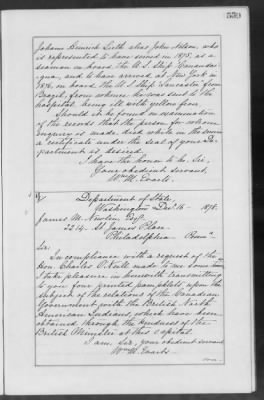 559
Johann Heinrich Lieth alias John Nelson, who
is represented to have served in 1875, as a
seaman on board the U.S. Ship
and to have arrived at New York in
1876, on board the U.S. Ship "Lancaster" from
Brazil, from whence he was sent to the
hospital, being ill with yellow fever.
Should it be found on examination
of the records that the person for whom
enquiry is made, died while in the service
a certificate under the seal of your De-
partment is desired.
I have the honor to be, Sir,
Your obedient servant,
Wm. M. Evarts.
Department of State,
Washington Dec. 16 - 1878.
James M. Newlin, Esq.
2214 St. James Place
Philadelphia Penna.
Sir:
In compliance with a request of the
Hon. Charles O'Neill made to me some
take pleasure in herewith transmitting
to you four printed pamphlets upon the
subject of the relations of the Canadian
Government with the British North
American Indians, which have been
obtained through the kindness of the
British Minister at this Capital.
I am, Sir, your obedient servant
Wm. M. Evarts